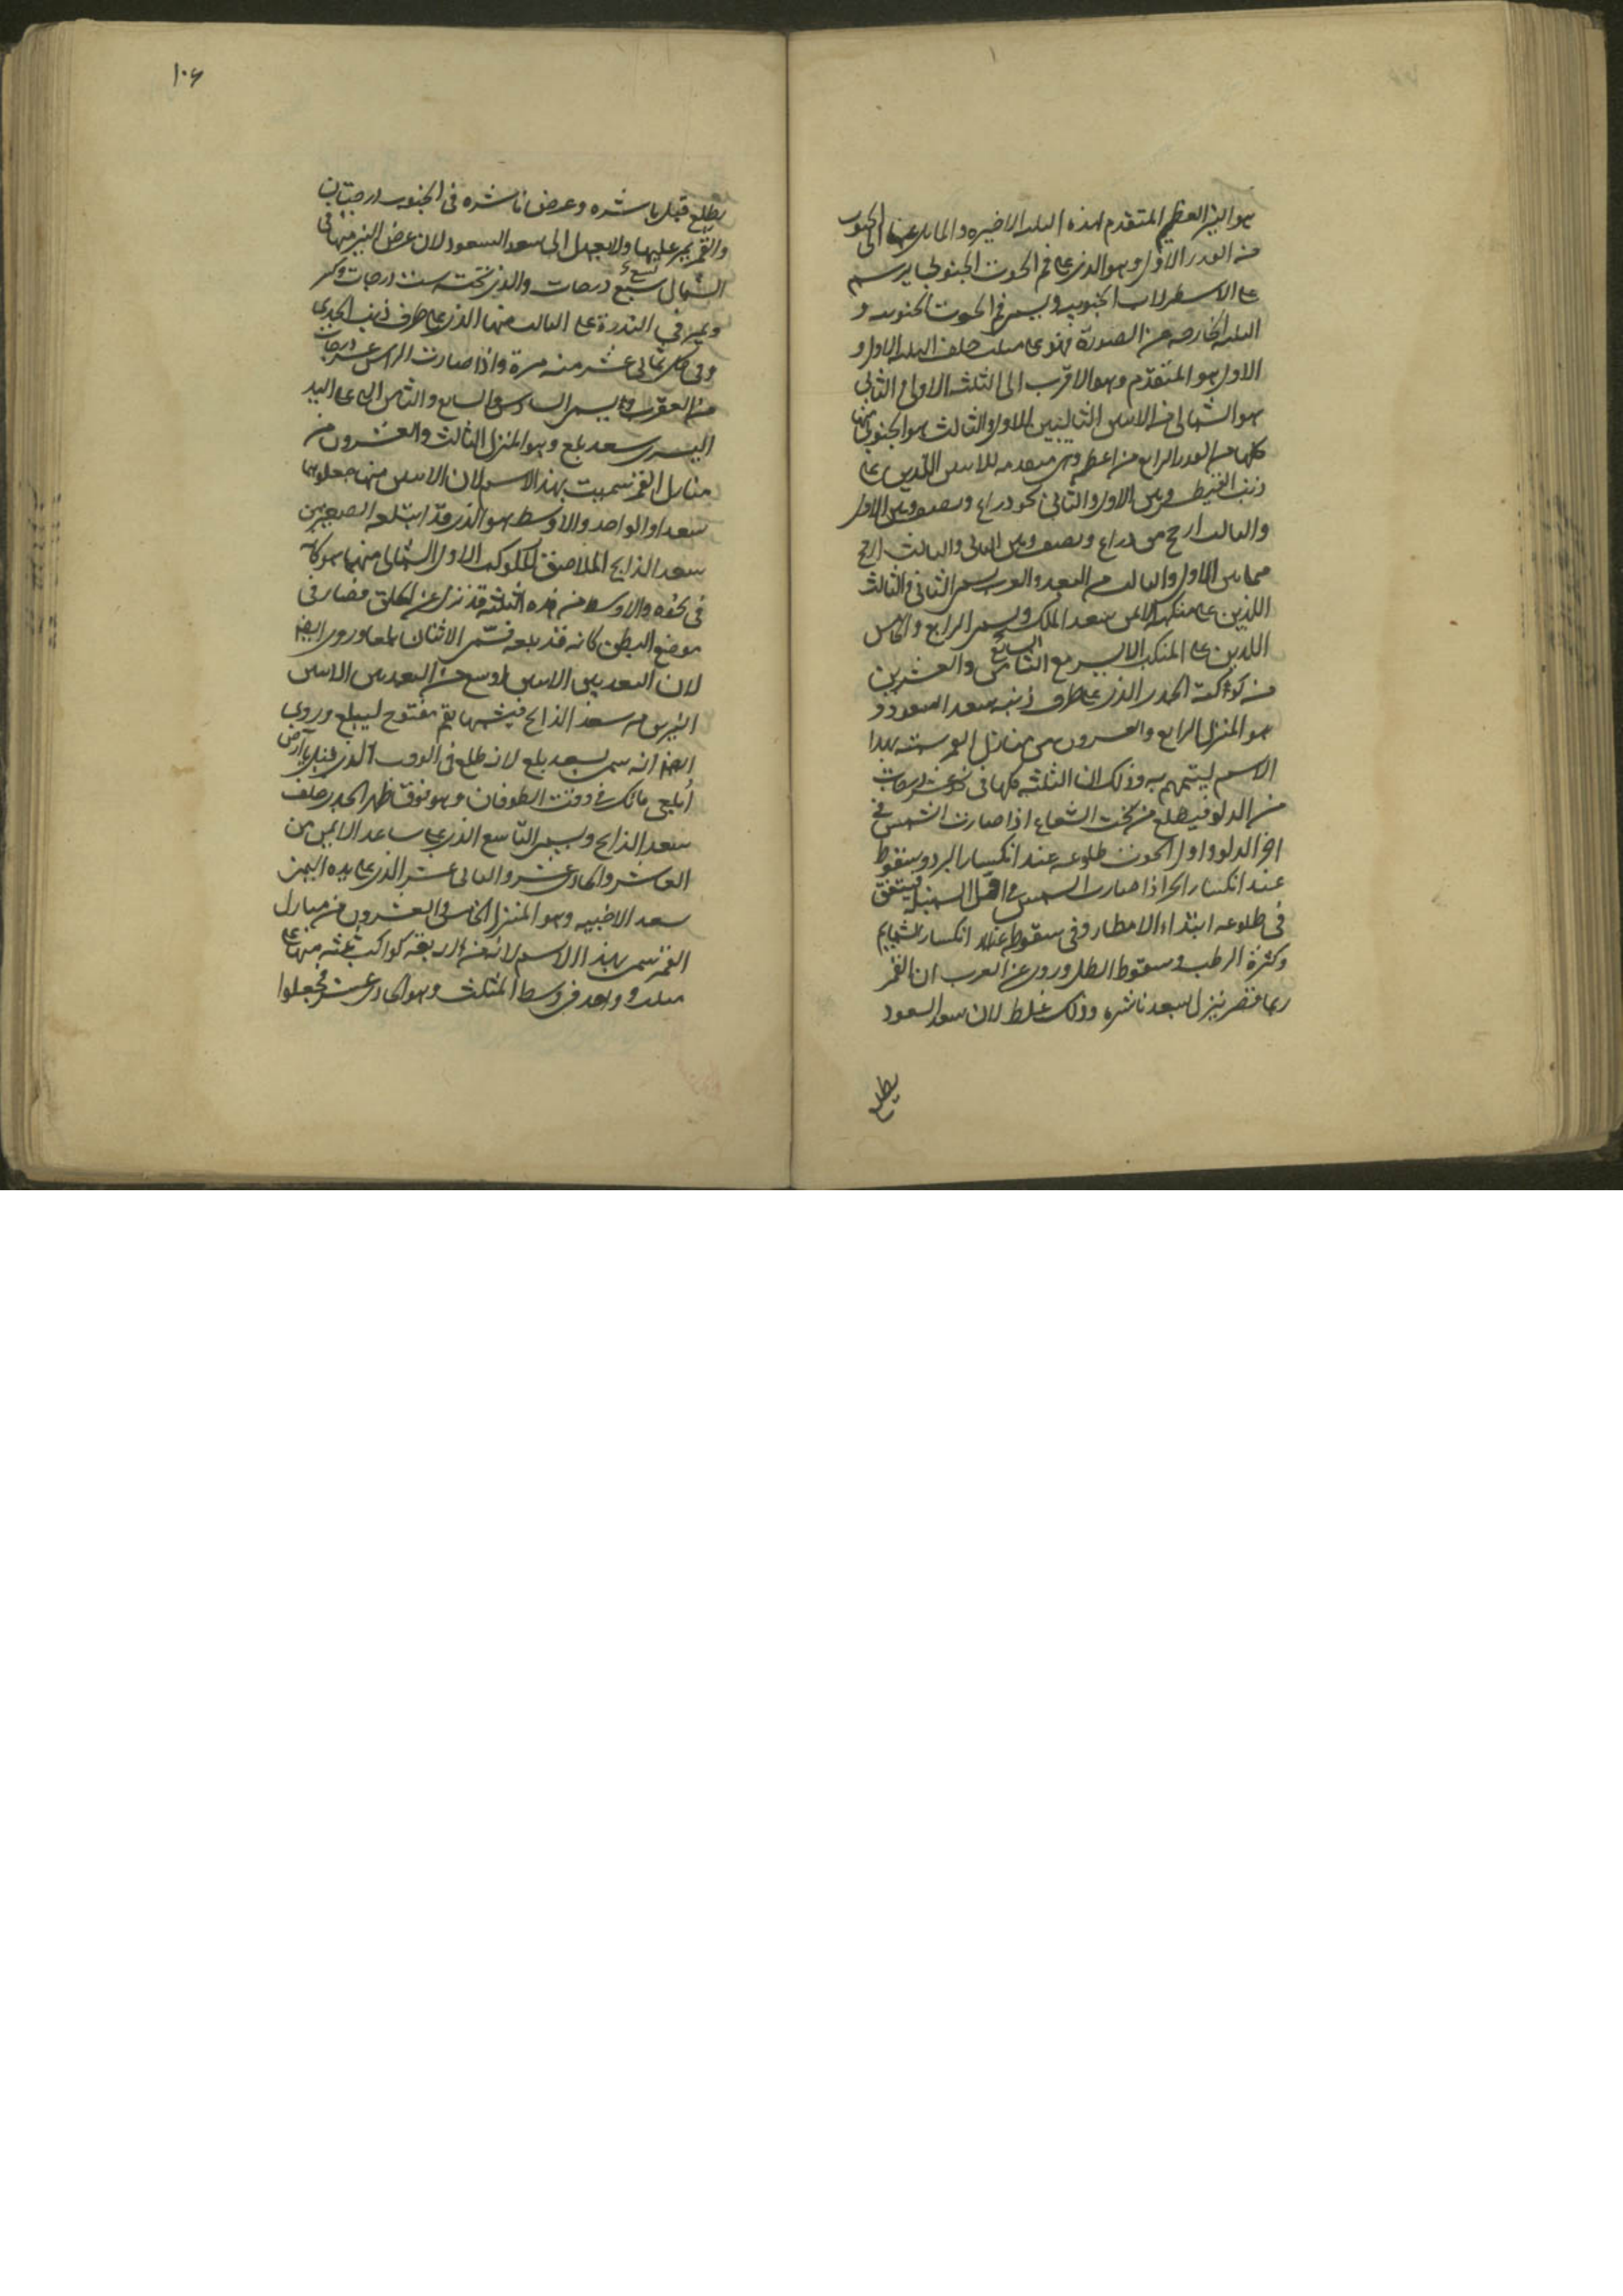 هو النير العظيم المتقدم لهذه الثلثة الاخيره والمايل عنها الى الجنوب
من القدر الاول وهو الذى على فم الحوت الجنوبى يرسم
على الاسطرلاب الجنوبى ويسمى فم الحوت الجنوبى و
الثلثة الخارجه من الصورة فهو على مثلث خلف الثلثه الاول و
الاول هو المتقدم وهو الاقرب الى الثلث الاولى والثانى
هو الشمالى من الاثنين التاليين للاول والثالث هو الجنوبى منها
كلها من القدر الرابع من اعظمه وهى متقدمه للاثنين اللذين على
ذنب القيطس وبين الاول والثانى نحو ذراع ونصف وبين الاول
والثالث ارجح من ذراع ونصف وبين الثانى والثالث ارجح
مما بين الاول والثالث من البعد والعرب يسمى الثانى والثالث
اللذين على منكبه الايمن سعد الملك ويسمى الرابع والخامس
اللذين على المنكب الايسر مع الثامن السابع والعشرين
من كوكبة الجدى الذى على طرف ذنبه سعد السعود و
هو المنزل الرابع والعشرون من منازل القمر سمت بهذا
الاسم ليتمهم به وذلك ان الثلثه كلها فى نحو عشر درجات
من الدلو فيطلع من تحت الشعاع اذا صارت الشمس فى
اخر الدلو واول الحوت طلوعه عند انكسار البرد وسقوطه
عند انكسار الحر اذا صارت الشمس فى اول السنبله فيتفق
فى طلوعه ابتداء الامطار وفى سقوطه عند انكسار السمايم
وكثرة الرطب وسقوط الطل وروى عن العرب ان القمر
ربما قصر ينزل بسعد ناشره وذلك غلط لان سعد السعود
يطلع
١٠٦
يطلع قبل ناشره وعرض ناشره فى الجنوب درجتان
والقمر يمر عليها ولا يعدل الى سعد السعود لان عرض النير منها فى
الشمال سبع تسع درجات والذى تحته ست درجات وكسر
ويمر فى الندرة على الثالث منها الذى على طرف ذنب الجدى
وفى كل ثمانى عشر سنه مرة واذا صارت الراس عشر درجات
من العقرب ويسمى السادس والسابع والثامن التى على اليد
اليسرى سعد بلع وهو المنزل الثالث والعشرون من
منازل القمر سميت بهذا الاسم لان الاثنين منها جعلوهما
سعدا والواحد والاوسط هو الذى قد ابتلعه الصغير من
سعد الذابح الملاصق للكوكب الاول الشمالى منهما هو كانه
فى نحره والاوسط من هذه الثلثه قد نزل عن الحلق فصار فى
موضع البطن كانه قد بلعه فسمى الاثنان بلعا وروى ايضا
لان البعد بين الاثنين اوسع من البعد بين الاثنين
النيرين من سعد الذابح فيشبهها بفم مفتوح ليبلع وروى
ايضا انه سمى بسعد بلع لانه طلع فى الوقت الذى قيل يا ارض
ابلعى ماءك فى وقت الطوفان وهو فوق ظهر الجدى خلف
سعد الذابح ويسمى التاسع الذى على ساعد الايمن من
العاشر والحادى عشر والثانى عشر الذى على يده اليمنى
سعد الاخبيه وهو المنزل الخامس والعشرون من منازل
القمر سمى بهذا الاسم لانه من اربعة كواكب ثلثه منها على
مثلث وواحد فى وسط المثلث وهو الحادى عشر فجعلوا